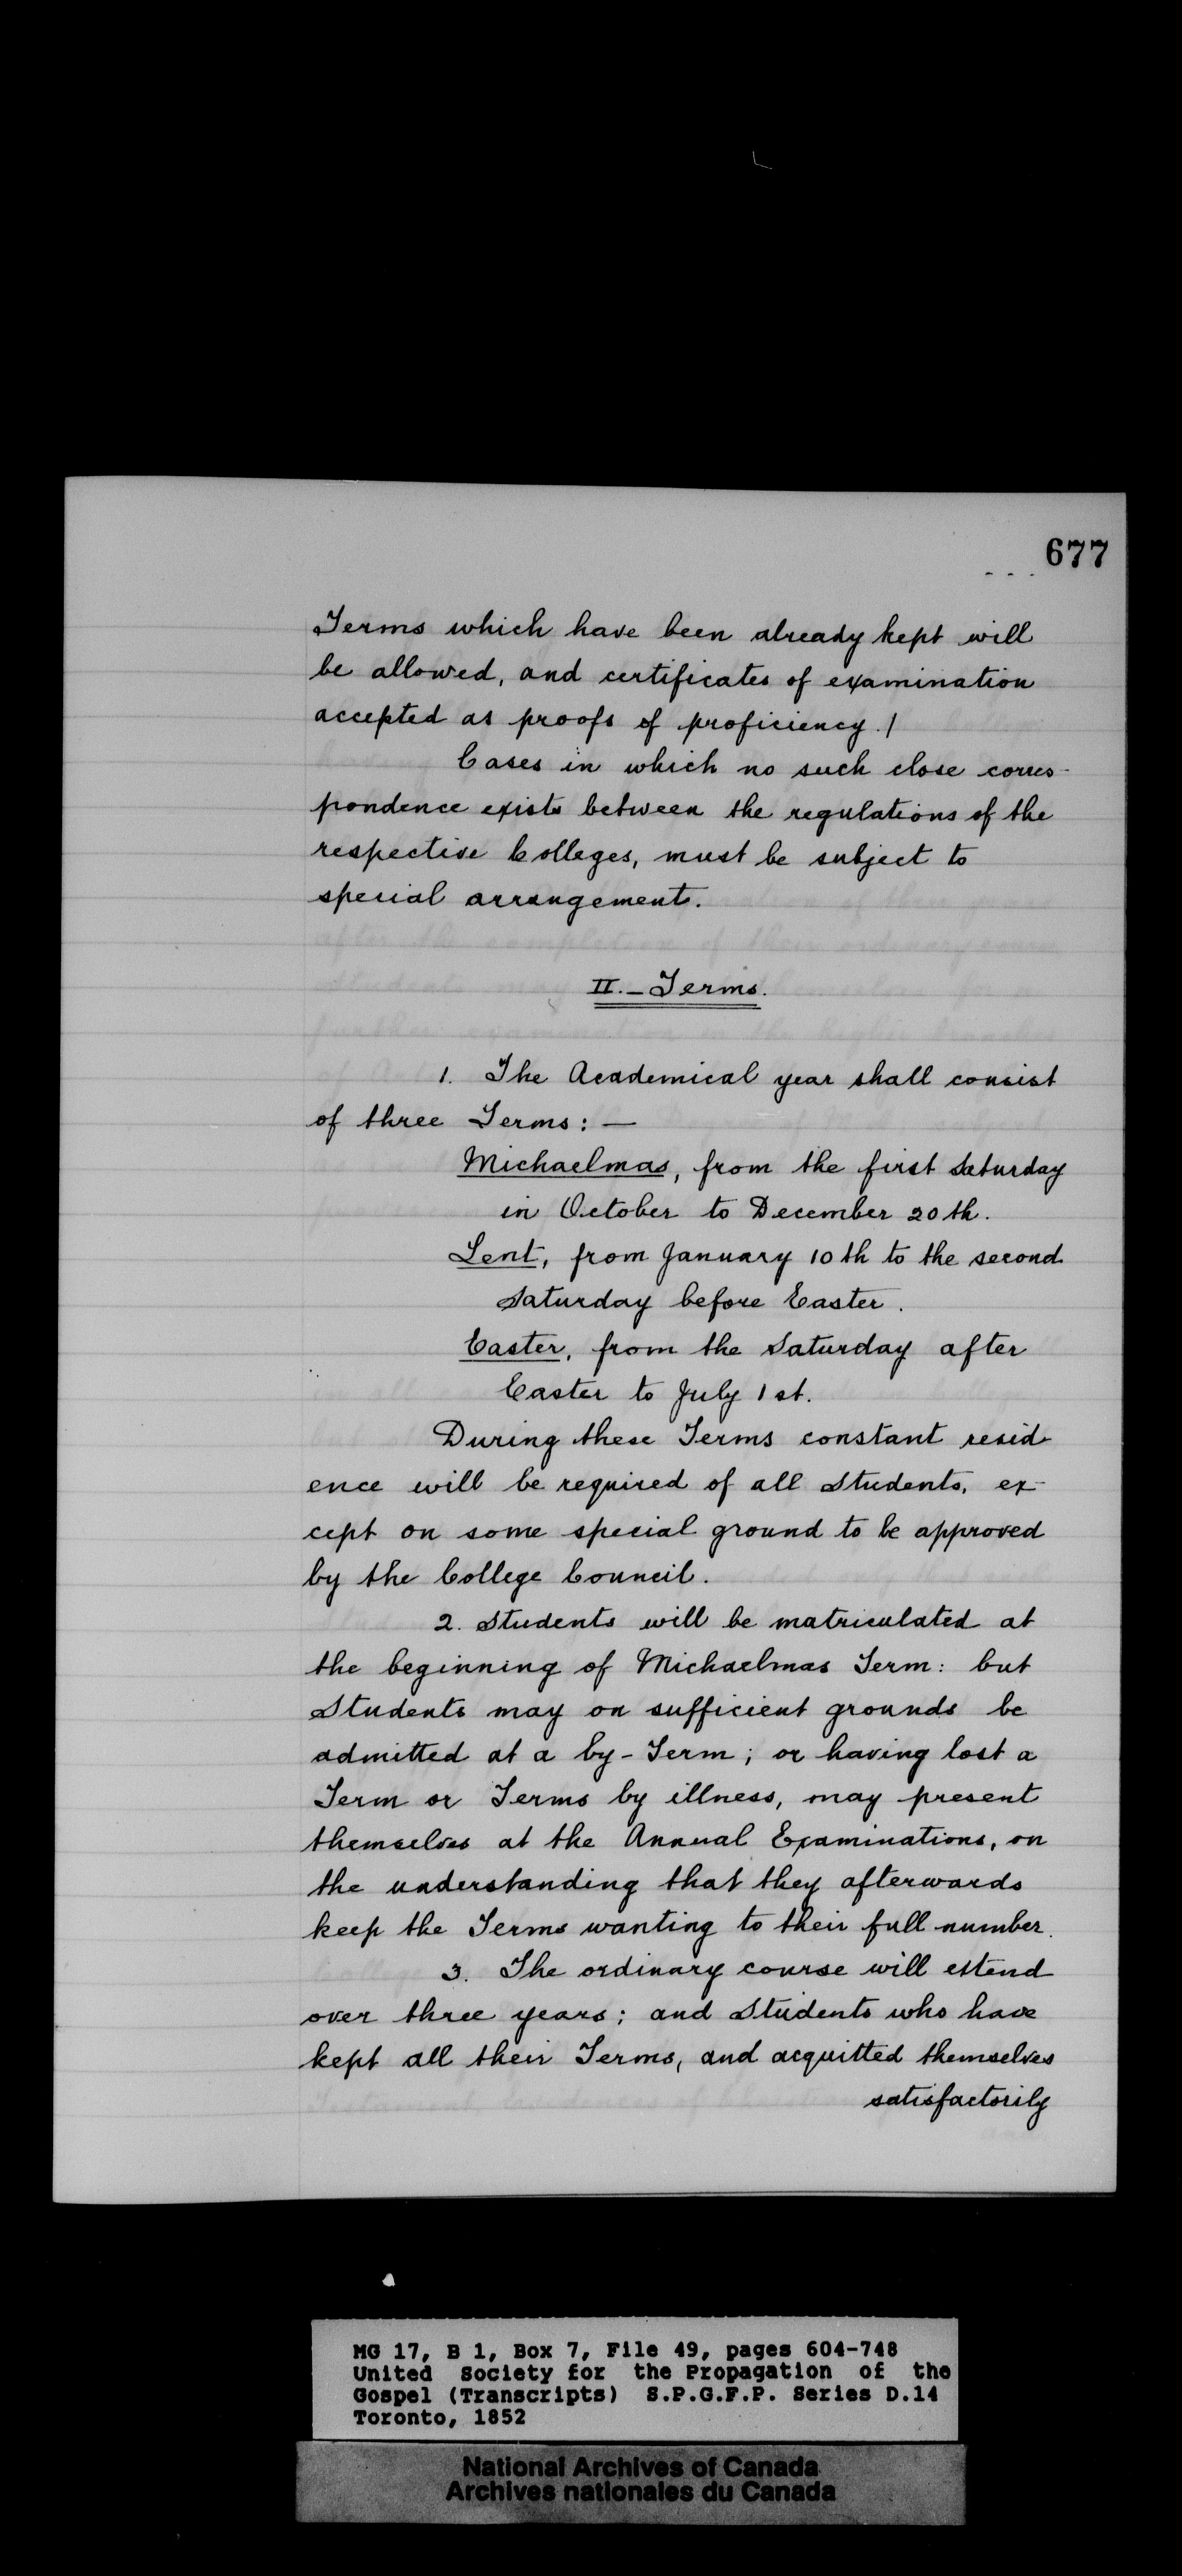 677
Terms which have been already kept will
be allowed, and certificates of examination
accepted as proofs of proficiency./
Cases in which no such close corres-
pondence exists between the regulations of the
respective Colleges, must be subject to
special arrangement.
II. — Terms.
1. The Academical year shall consist
of three Terms: —
Michaelmas, from the first Saturday
in October to December 20th.
Lent, from January 10th to the second
Saturday before Easter.
Easter, from the Saturday after
Easter to July 1st.
During these Terms constant resid-
ence will be required of all Students, ex-
cept on some special ground to be approved
by the College Council.
2. Students will be matriculated at
the beginning of Michaelmas Term: but
Students may on sufficient grounds be
admitted at a by-Term; or having lost a
Term or Terms by illness, may present
themselves at the Annual Examinations, on
the understanding that they afterwards
keep the Terms wanting to their full number.
3. The ordinary course will extend
over three years; and Students who have
kept all their Terms, and acquitted themselves
satisfactorily
MG 17, B 1, Box 7, File 49, pages 604-748
United Society for the Propagation of the
Gospel (Transcripts) S.P.G.F.P. Series D.14
Toronto, 1852
National Archives of Canada
Archives nationales du Canada